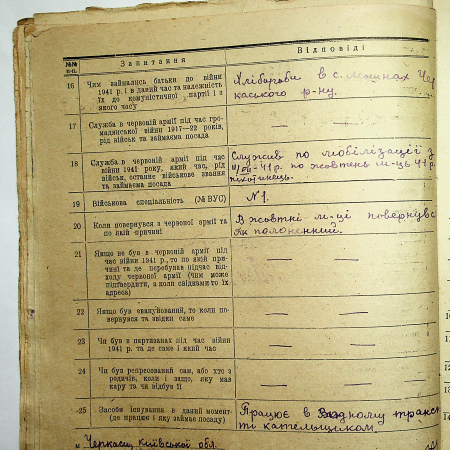 №№ п-п. Запитання Відповіді
16 Чим займались батьки до війни
1941 р. і в даний час та належність
їх до комуністичної партії і з
якого часу
Хлібороби в с. Мошнах Чер
каського р-ну.
17 Служба в червоній армії під час гро-
мадянської війни 1917—22 років,
рід військ та займаєма посада
— —
18 Служба в червоній армії під час
війни 1941 року, який час, рід
військ, останнє військове звання
та займаєма посада
Служив по мобілізації з
по жовтень м-ць 41 р.
піхотинець.
19 Військова спеціяльність (№ ВУС)
№1.
20 Коли повернувся з червоної армії та
по якій причині
В жовтні м-ці повернувс
як полонений.
21 Якщо не був в червоній армії під
час війни 1941 р., то по якій при-
чині та де перебував підчас від-
ходу червоної армії (чим може
підтвердити, а коли свідками то їх
адреса)
— —
22 Якщо був евакуйований, то коли по-
вернувся та звідки саме
— —
23 Чи був в партизанах під час війни
1941 р. та де саме і який час
— —
24 Чи був репресований сам, або хто з
родичів, коли і защо, яку мав
кару та чи відбув її
— —
25 Засоби існування в даний момент
(де працює і яку займає посаду)
Працює в Водному трансп
ті кательщиком.
Черкаси, Київської обл.